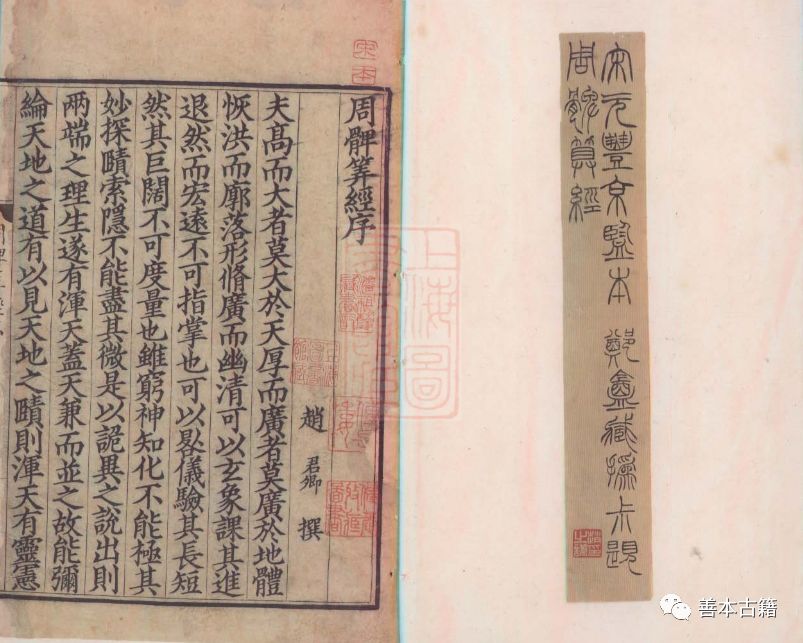 宋元豐京監本 鄭盦藏撝叔題
周髀算經
宋本
周髀筭經序
趙君卿撰
夫髙而大者莫大於天厚而廣者莫廣於地體
恢洪而廓落形脩廣而幽清可以玄象課其進
退然而宏遠不可指掌也可以晷儀驗其長短
然其巨闊不可度量也雖窮神知化不能極其
妙探賾索隱不能盡其微是以詭異之說出則
兩端之理生遂有渾天蓋天兼而並之故能彌
綸天地之道有以見天地之賾則渾天有靈憲
上海圖
善本古籍